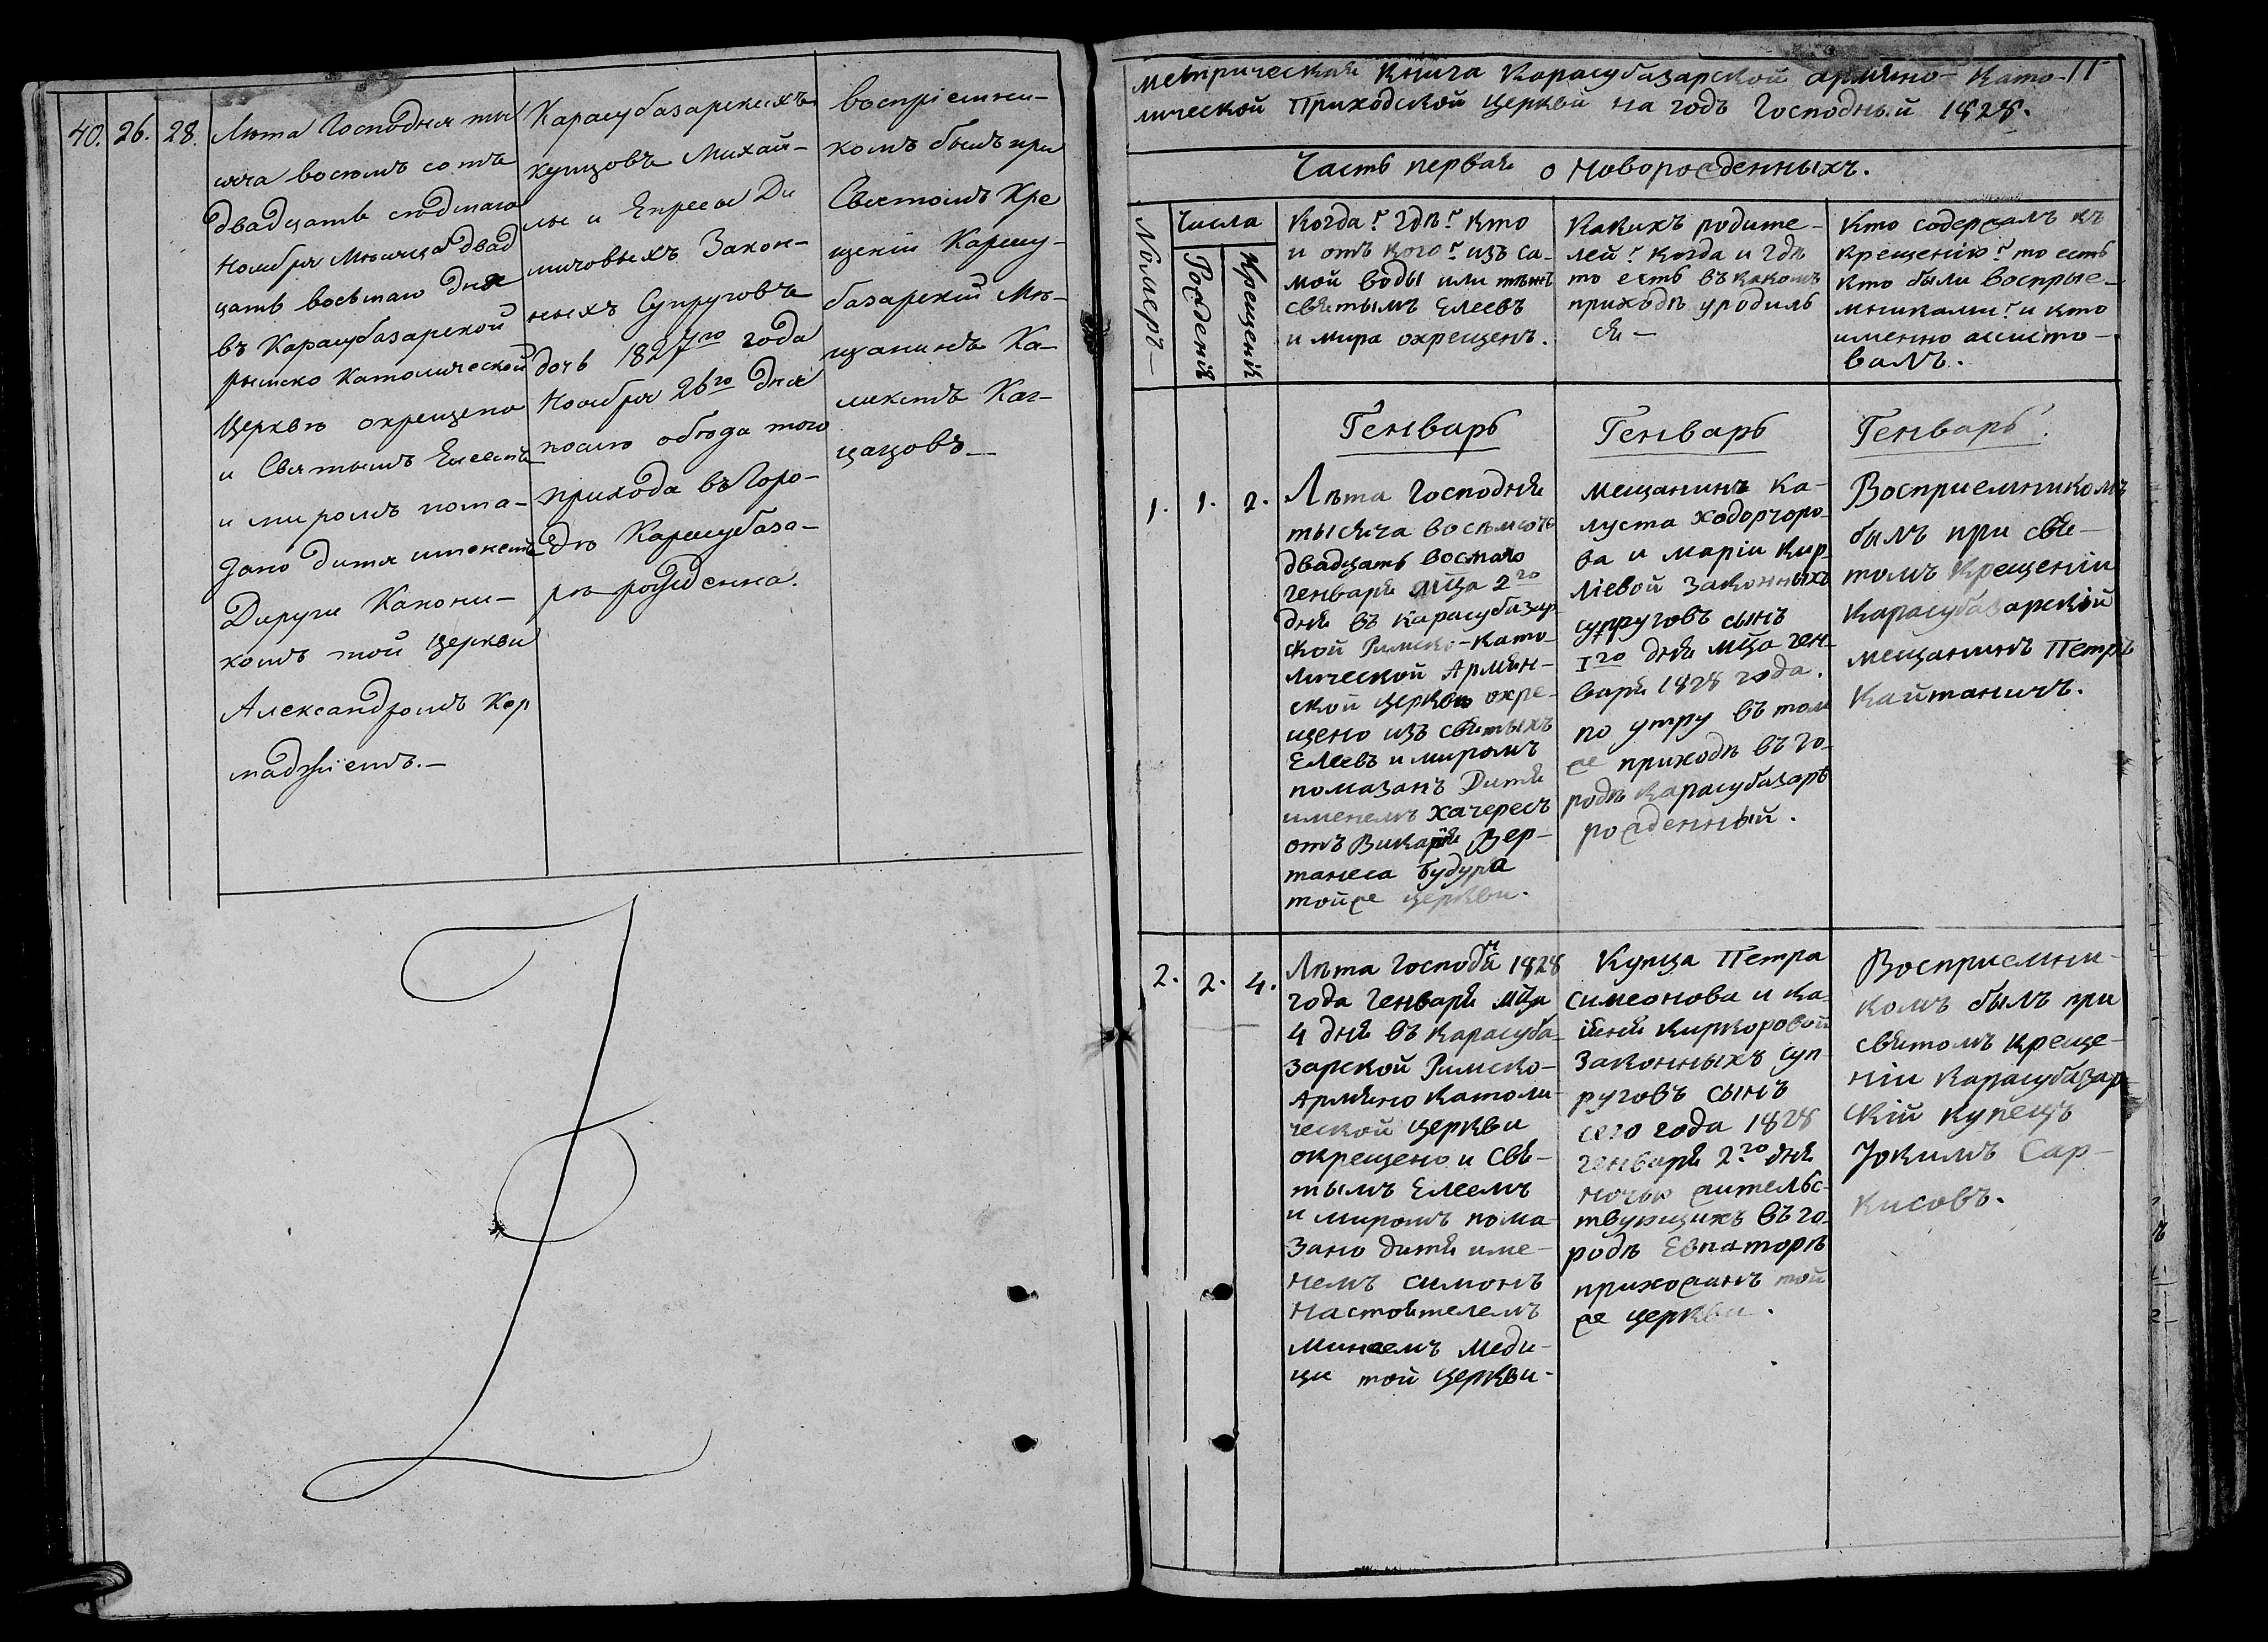 40. 26. 28.
Лѣта Господня ты
сяча восемь сотъ
двадцать седмаго
Ноября Мѣсяца двад
цать восьмаго дня
въ Карасубазарской
рымско Католической
Церквѣ окрещено
и Святымъ Елеемъ
и миромъ пома-
зано дитя именемъ
Дируги Канони-
комъ той Церкви
Александромъ Кер
маджіемъ.—
Карасубазарскихъ
купцовъ Михай-
лы и Епресы Ди
миговыхъ Закон-
ныхъ Супруговъ
дочь 1827го года
Ноября 26го дня
послѣ обѣда того
прихода въ Горо-
дѣ Карасубаза-
рѣ рожденна.
воспріемни-
комъ былъ при
Святомъ Кре
щеніи Карасу-
базарскій Мѣ-
щанинъ Ка-
цацовъ—
11
метрическая Книга Карасубазарской армяно-Като-
лической Приходской церкви на годъ Господный 1828.
Часть первая о Новорожденныхъ.
Номеръ
Числа
Рожденія
Крещенія
Когда? гдѣ? кто
и отъ кого? изъ са-
мой воды или тѣмъ
святымъ Елеевъ
и мира окрещенъ.
Какихъ родите-
лей? когда и гдѣ
то есть въ какомъ
приходѣ уродилъ
ся—
Кто содержалъ къ
крещенію? то есть
кто были воспрые-
мниками? и кто
именно ассисто-
валъ.
Генварь
Генварь
Генварь.
1. 1. 2.
Лѣта Господня
тысяча восемсотъ
двадцать восмаго
генваря мца 2го
дня въ карасубазар
ской Римско-като-
лической Армян-
ской церквѣ окре-
щено изъ святыхъ
Елеевъ и миромъ
помазанъ Дитя
именемъ Хачересъ
отъ Викарія Вер-
танеса Будура
тойже церкви.
мещанинъ Ка-
луста Ходорчоро-
ва и маріи Кир-
ліевой Законныхъ
супруговъ сынъ
1го дня мца ген-
варя 1828 года.
по утру въ том
же приходѣ въ го-
родѣ карасубазарѣ
рожденный.
Восприемникомъ
былъ при свя-
томъ крещеніи
Карасубазарскій
мещанинъ Петръ
Кайтаничъ.
2. 2. 4.
Лѣта господня 1828
года генваря мца
4 дня въ карасуба-
зарской Римско-
Армяно Католи-
ческой церкви
окрещено и Свя-
тымъ Елеемъ
и миромъ пома-
зано дитя име-
немъ симонъ
Настоятелемъ
Минаемъ Меди-
ци той церкви-
Купца Петра
симеонова и
Киркоровой
Законныхъ суп-
руговъ сынъ
сего года 1828
генваря 2го дня
ночью жительс-
твующихъ въ го-
родѣ Евпаторѣ
прихожанъ той
же церкви.
Восприемни-
комъ былъ при
святомъ креще-
ніи Карасубазар
скій купецъ
Іокимъ Сар-
кисовъ.